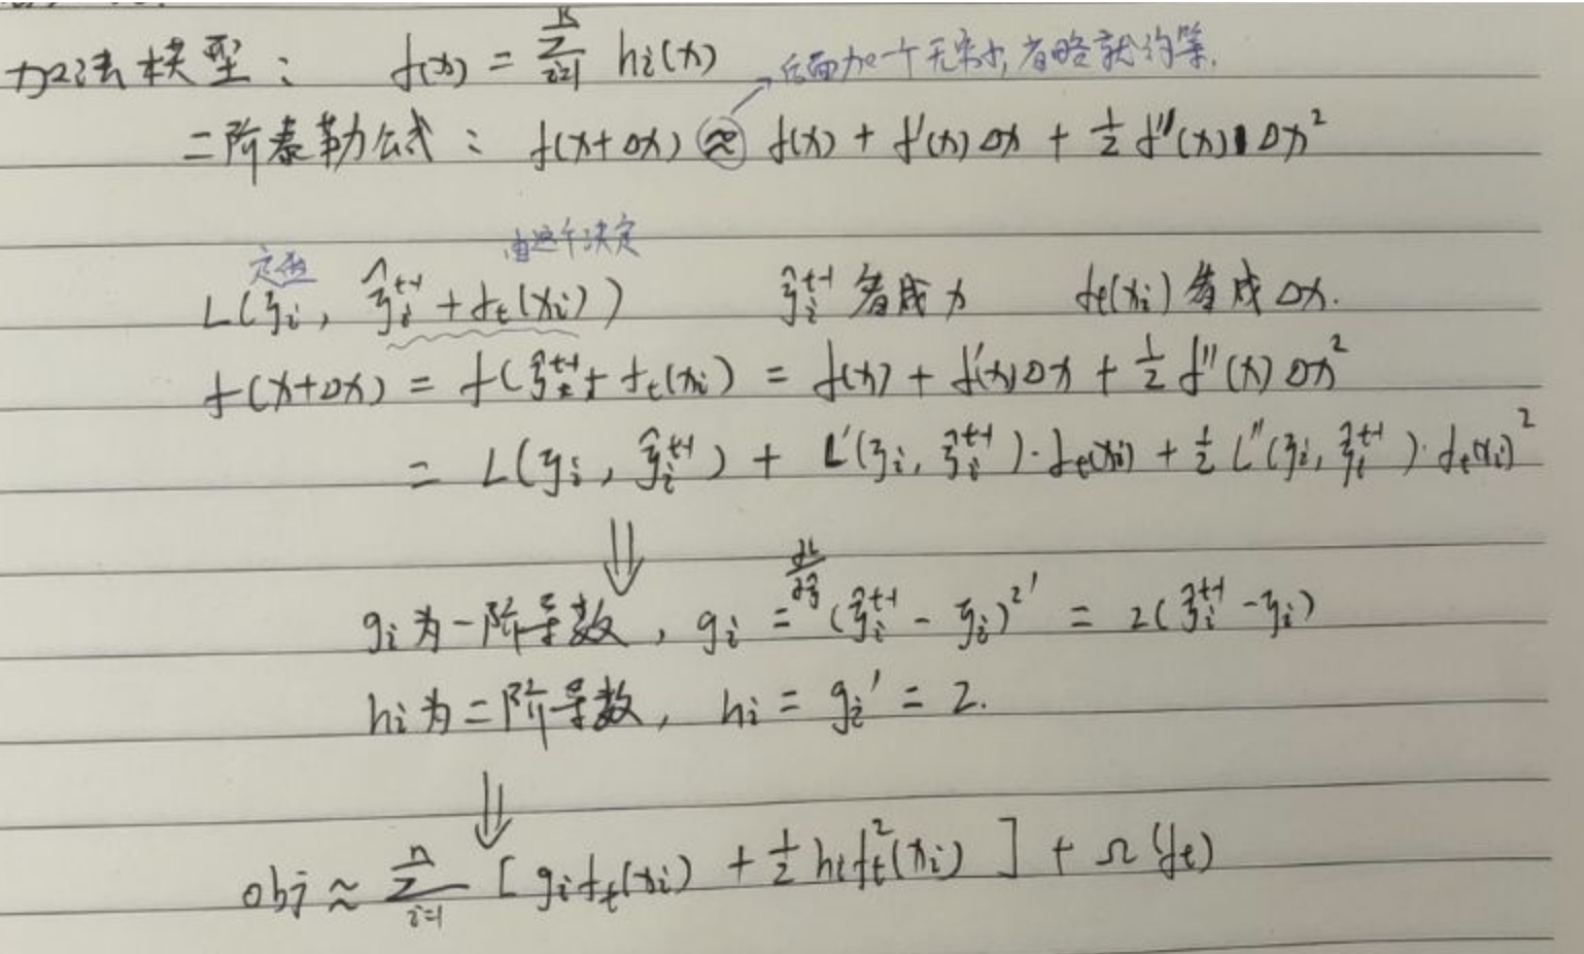 加法模型: f(x) = \sum_{i=1}^{K} h_i(x)
后面加一个无穷小,省略就约等.
二阶泰勒公式: f(x+Δx) ≈ f(x) + f'(x)Δx + \frac{1}{2} f''(x) Δx^2
定值 由这个决定
L(y_i, \hat{y}_i^{t-1} + f_t(x_i)) \hat{y}_i^{t-1} 看成x f_t(x_i) 看成Δx.
f(x+Δx) = f(\hat{y}_i^{t-1} + f_t(x_i) = f(x) + f'(x)Δx + \frac{1}{2} f''(x) Δx^2
= L(y_i, \hat{y}_i^{t-1}) + L'(y_i, \hat{y}_i^{t-1})·f_t(x_i) + \frac{1}{2} L''(y_i, \hat{y}_i^{t-1})·f_t(x_i)^2
⇓
g_i为一阶导数, g_i = \frac{∂L}{∂\hat{y}} (\hat{y}_i^{t-1} - y_i)^{2}' = 2(\hat{y}_i^{t-1} - y_i)
h_i为二阶导数, h_i = g_i' = 2.
⇓
obj ≈ \sum_{i=1}^{n} [g_i f_t(x_i) + \frac{1}{2} h_i f_t^2(x_i)] + Ω(f_t)